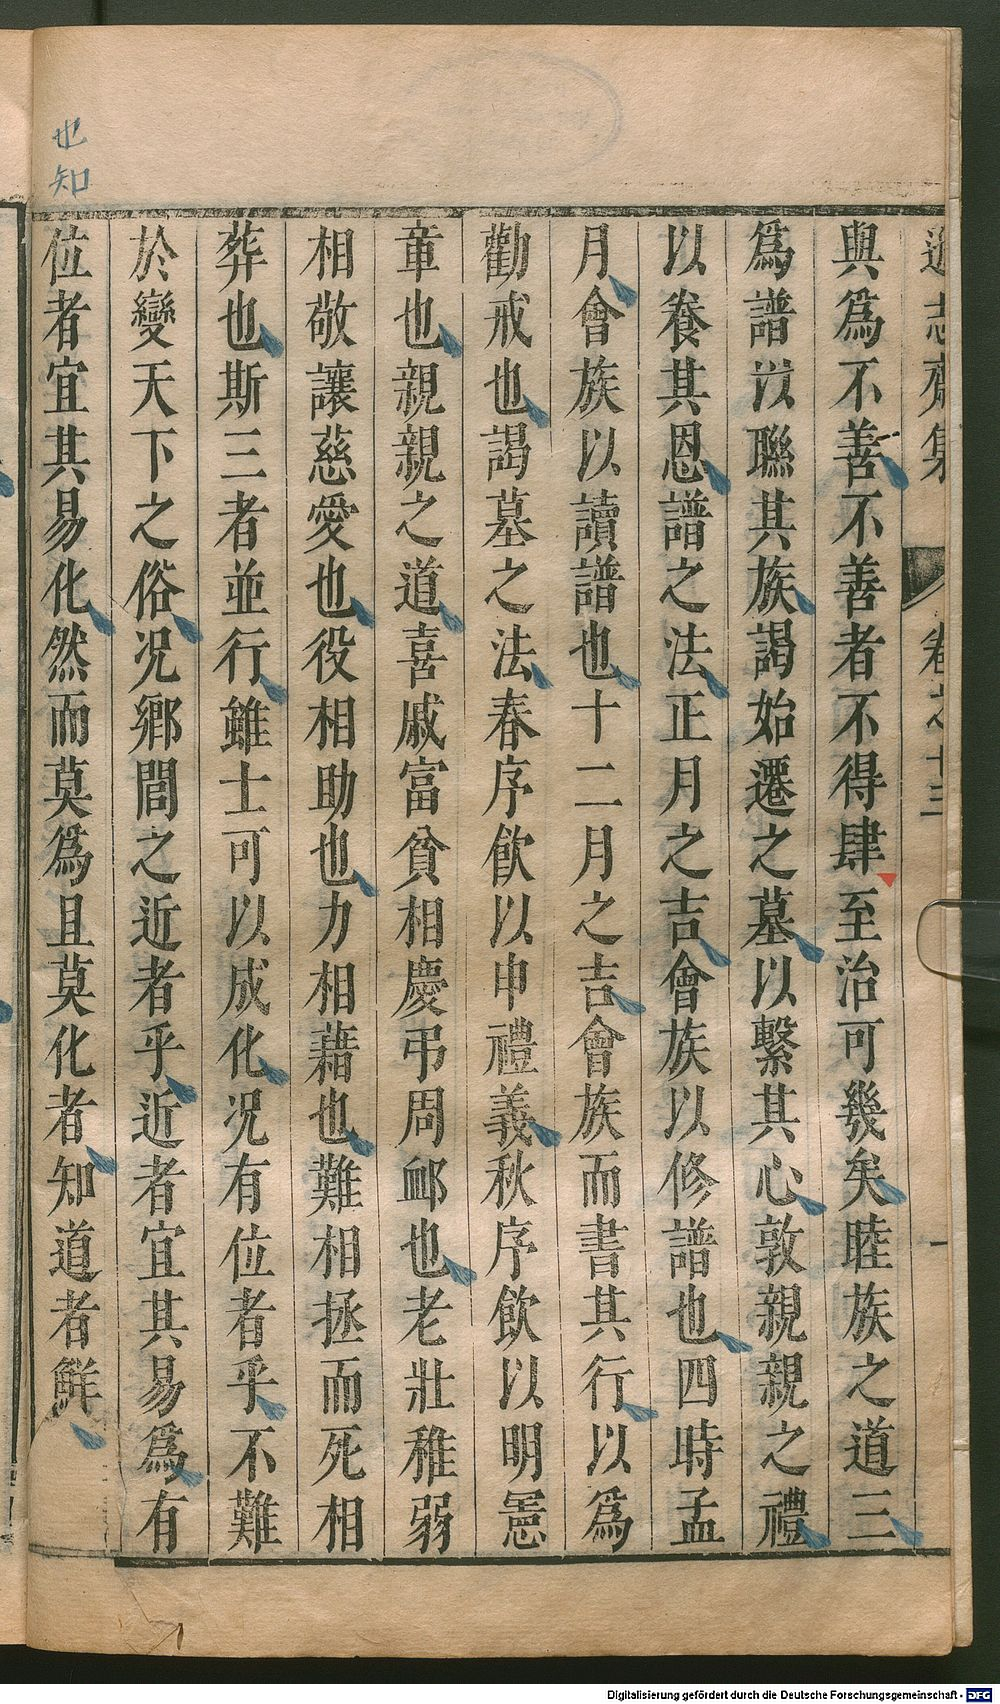 遜志齋集 卷之十三 一
與爲不善不善者不得肆至治可幾矣睦族之道三
爲譜以聯其族謁始遷之墓以繫其心敦親親之禮
以養其恩譜之法正月之吉會族以修譜也四時孟
月會族以讀譜也十二月之吉會族而書其行以爲
勸戒也謁墓之法春序飮以申禮義秋序飮以明憲
章也親親之道喜戚富貧相慶弔周衈也老壯稚弱
相敬讓慈愛也役相助也力相藉也難相拯而死相
葬也斯三者並行雖士可以成化况有位者乎不難
於變天下之俗况鄉閭之近者乎近者宜其易爲有
位者宜其易化然而莫爲且莫化者知道者鮮
也知
Digitalisierung gefördert durch die Deutsche Forschungsgemeinschaft - DFG